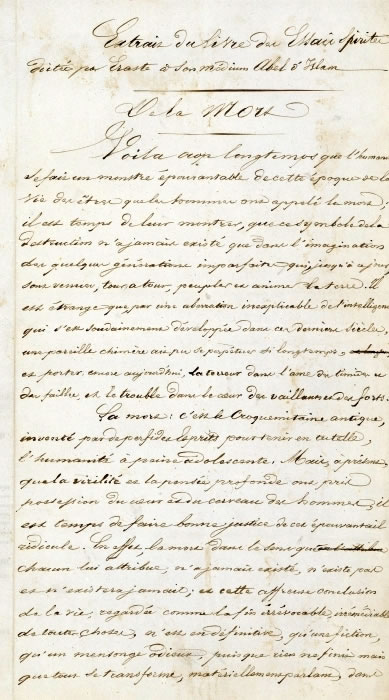 Extrait du livre des Essais Spirites
dictés par Eraste à son médium Abel d'Islam
De la Mort
Voila trop longtemps que l'human
se fait un monstre épouvantable de cette époque de la
vie des êtres que les hommes ont appelé la mort;
il est temps de leur montrer, que ce symbole de la
destruction n'a jamais existé que dans l'imagination
des quelques générations imparfaites qui, jusqu'à ce jour
sont venues, tour à tour, peupler et animer la terre. Il
est étrange que par une aberration inexplicable de l'intelligence
qui s'est soudainement développée dans ces derniers siècles,
une pareille chimère ait pu se perpétuer si longtemps,
et porter encore aujourd'hui, la terreur dans l'ame du timide et
du faible, et le trouble dans le cœur des vaillants et des forts.
La mort: c'est le Croquemitaine antique,
inventé par de perfides Esprits pour tenir en tutelle,
l'humanité à peine adolescente. Mais, à présent
que la virilité et la pensée profonde ont pris
possession du cœur et du cerveau des hommes, il
est temps de faire bonne justice de cet épouvantail
ridicule. En effet, la mort dans le sens que
chacun lui attribue, n'a jamais existé, n'existe pas
et n'existera jamais; et cette affreuse conclusion
de la vie, regardée comme la fin irrévocable, irrémédiable
de toute chose, n'est en définitive, qu'une fiction
qu'un mensonge odieux, puisque rien ne finit mais
que tout se transforme, matériellement parlant, dans